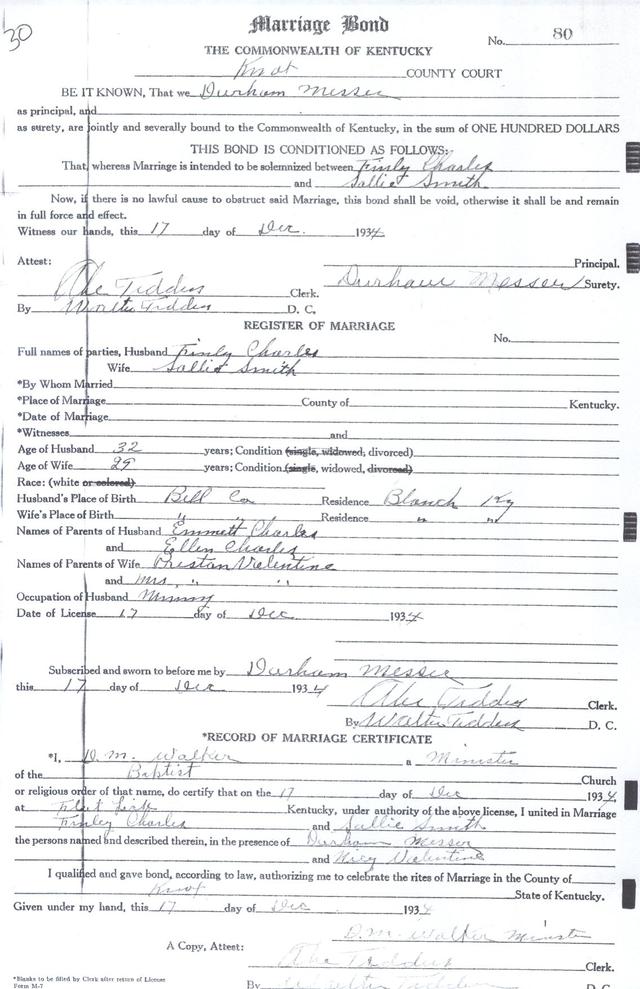 30
Marriage Bond
No. 80
THE COMMONWEALTH OF KENTUCKY
Knox COUNTY COURT
BE IT KNOWN, That we Durham Messer
as principal, and
as surety, are jointly and severally bound to the Commonwealth of Kentucky, in the sum of ONE HUNDRED DOLLARS
THIS BOND IS CONDITIONED AS FOLLOWS:
That, whereas Marriage is intended to be solemnized between Finly Charles
and Sallie Smith
Now, if there is no lawful cause to obstruct said Marriage, this bond shall be void, otherwise it shall be and remain
in full force and effect.
Witness our hands, this 17 day of Dec. 1934
Attest: Principal.
Clerk. Durham Messer Surety.
By Walter D. C.
REGISTER OF MARRIAGE
No.
Full names of parties, Husband Finly Charles
Wife Sallie Smith
*By Whom Married
*Place of Marriage County of Kentucky.
*Date of Marriage
*Witnesses and
Age of Husband 32 years; Condition (single, widowed, divorced)
Age of Wife 29 years; Condition (single, widowed, divorced)
Race: (white or colored)
Husband's Place of Birth Bell Co Residence Blanch Ky
Wife's Place of Birth " " Residence " "
Names of Parents of Husband Emmett Charles
and Ellen Charles
Names of Parents of Wife Valentine
and Mrs. " "
Occupation of Husband Mining
Date of License 17 day of Dec 1934
Subscribed and sworn to before me by Durham Messer
this 17 day of Dec 1934
Clerk.
By Walter D. C.
*RECORD OF MARRIAGE CERTIFICATE
*I, D. M. Walker a Minister
of the Baptist Church
or religious order of that name, do certify that on the 17 day of Dec 1934
at Flat Lick Kentucky, under authority of the above license, I united in Marriage
Finley Charles and Sallie Smith
the persons named and described therein, in the presence of Durham Messer
and Valentine
I qualified and gave bond, according to law, authorizing me to celebrate the rites of Marriage in the County of
Knox State of Kentucky.
Given under my hand, this 17 day of Dec 1934
D. M. Walker Minister
A Copy, Attest:
Clerk.
*Blanks to be filled by Clerk after return of License
Form M-7
By D. C.